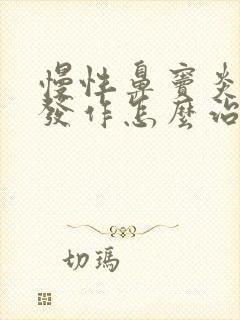 慢性鼻竇炎
發作怎麼治
切瑪